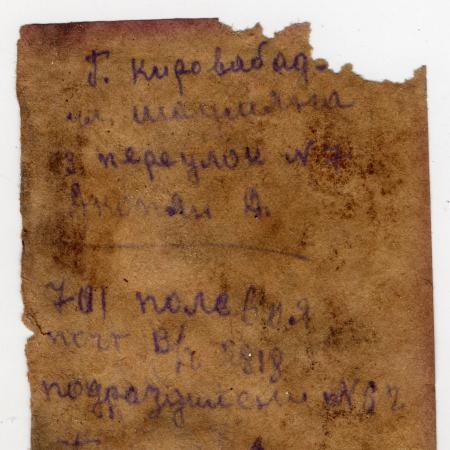 Г. Кировабад
ул. шаумяна
3 переулок N 7
Акопян А.
701 полевая
почт В/ч
подразделени